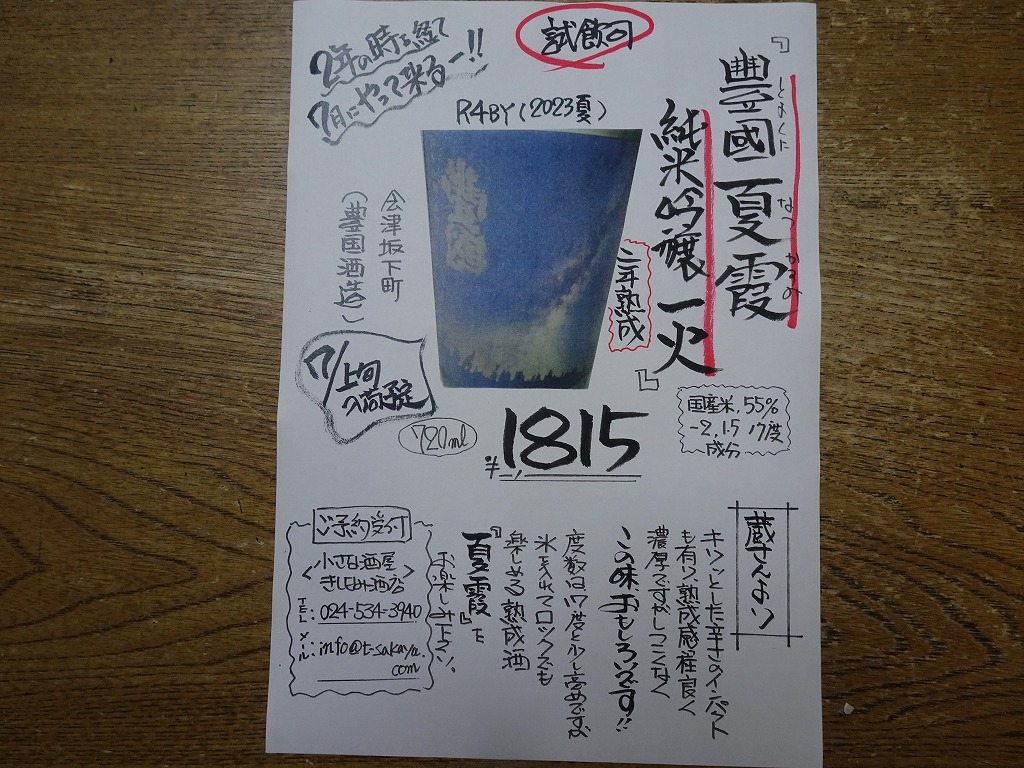 試飲可
2年の時を経て
7月にやって来るー!!
『豐國 夏霞
とよくに なつ がすみ
純米吟醸 一火』
R4BY(2023夏)
豐國
二年熟成
会津坂下町
(豊国酒造)
7/上旬
入荷予定
720ml
¥1815
国産米, 55%
-2, 1.5 17度
成分
蔵さんより
キリッとした辛さのインパクト
も有り、熟成感程良く
濃厚ですがしつこくなく
この味、おもしろいです!!
度数は17度と少し高めですが
氷を入れてロックでも
楽しめる熟成酒
『夏霞』を
お楽しみ下さい。
ご予約受付
<小さな酒屋
きしなみ酒店>
TEL: 024-534-3940
メール: info@t-sakaya.
com